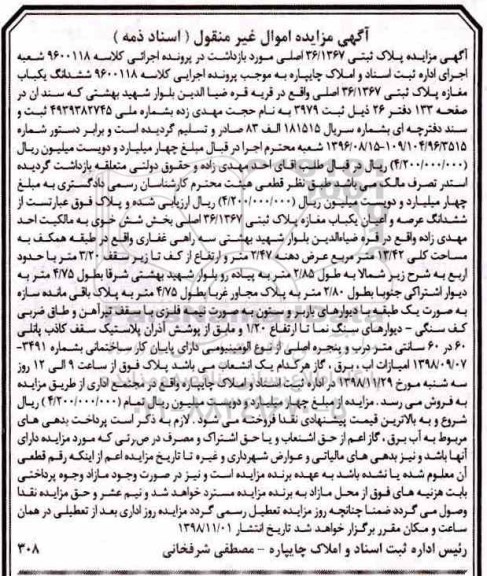 آگهی مزایده اموال غیر منقول ( اسناد ذمه )
آگهی مزایده پلاک ثبتی ۳۶/۱۳۶۷ اصلی مورد بازداشت در پرونده اجرائی کلاسه ۹۶۰۰۱۱۸ شعبه
اجرای اداره ثبت اسناد و املاک چایپاره به موجب پرونده اجرایی کلاسه ۹۶۰۰۱۱۸ ششدانگ یکباب
مغازه پلاک ثبتی ۳۶/۱۳۶۷ اصلی واقع در قریه قره ضیا الدین بلوار شهید بهشتی که سند ان در
صفحه ۱۳۳ دفتر ۲۶ ذیل ثبت ۳۹۷۹ به نام حجت مهدی زده بشماره ملی ۴۹۳۹۳۸۲۷۴۵ ثبت و
سند دفترچه ای بشماره سریال ۱۸۱۵۱۵ الف ۸۳ صادر و تسلیم گردیده است و برابر دستور شماره
۱۰۹/۱۰۴/۹۶/۳۵۱۵-۱۳۹۶/۰۸/۱۵ شعبه محترم اجرا در قبال مبلغ چهار میلیارد و دویست میلیون ریال
(۴/۲۰۰/۰۰۰/۰۰۰) ریال در قبال طلب اقای احد مهدی زاده و حقوق دولتی متعلقه بازداشت گردیده
است در تصرف مالک می باشد طبق نظر قطعی هیئت محترم کارشناسان رسمی دادگستری به مبلغ
چهار میلیارد و دویست میلیون ریال (۴/۲۰۰/۰۰۰/۰۰۰) ریال ارزیابی شده و پلاک فوق عبارتست از
ششدانگ عرصه و اعیان یکباب مغازه پلاک ثبتی ۳۶/۱۳۶۷ اصلی بخش شش خوی به مالکیت احد
مهدی زاده واقع در قره ضیاءالدین بلوار شهید بهشتی سه راهی غفاری واقع در طبقه همکف به
مساحت کلی ۱۳/۴۲ متر مربع عرض دهنه ۲/۴۷ متر و ارتفاع از کف تا زیر سقف ۳/۲۰ متر با حدود
اربع به شرح زیر شمالا به طول ۲/۸۵ متر به پیاده رو بلوار شهید بهشتی شرقا بطول ۴/۷۵ متر به
دیوار اشتراکی جنوبا بطول ۲/۸۰ متر به پلاک مجاور غربا بطول ۴/۷۵ متر به پلاک باقی مانده سازه
به صورت یک طبقه با دیوارهای باربر و ستون به صورت نیمه فلزی با سقف تیرآهن و طاق ضربی
کف سنگی - دیوارهای سنگ نما تا ارتفاع ۱/۲۰ و مابق از پوشش آذران پلاستیک سقف کاذب پانلی
۶۰ در ۶۰ سانتی متر درب و پنجره اصلی از نوع الومینیومی دارای پایان کار ساختمانی بشماره ۳۴۹۱-
۱۳۹۸/۰۹/۰۷ امیازات اب ، برق ، گاز هرکدام یک انشعاب می باشد پلاک فوق از ساعت ۹ الی ۱۲ روز
سه شنبه مورخ ۱۳۹۸/۱۱/۲۹ در اداره ثبت اسناد و املاک چایپاره واقع در مجتمع اداری از طریق مزایده
به فروش می رسد . مزایده از مبلغ چهار میلیارد و دویست میلیون ریال تمام (۴/۲۰۰/۰۰۰/۰۰۰ ) ریال
شروع و به بالاترین قیمت پیشنهادی نقدا فروخته می شود . لازم به ذکر است پرداخت بدهی های
مربوط به آب برق ، گاز اعم از حق اشنعاب و یا حق اشتراک و مصرف در صرتی که مورد مزایده دارای
آنها باشد و نیز بدهی های مالیاتی و عوارض شهرداری و غیره تا تاریخ مزایده اعم از اینکه رقم قطعی
آن معلوم شده یا نشده باشد به عهده برنده مزایده است و نیز در صورت وجود مازاد وجوه پرداختی
بابت هزنیه های فوق از محل مازاد به برنده مزایده مسترد خواهد شد و نیم عشر و حق مزایده نقدا
وصول می گردد ضمنا چنانچه روز مزایده تعطیل رسمی گردد مزایده روز اداری بعد از تعطیلی در همان
ساعت و مکان مقرر برگزار خواهد شد تاریخ انتشار ۱۳۹۸/۱۱/۰۱
رئیس اداره ثبت اسناد و املاک چایپاره - مصطفی شرفخانی ۳۰۸